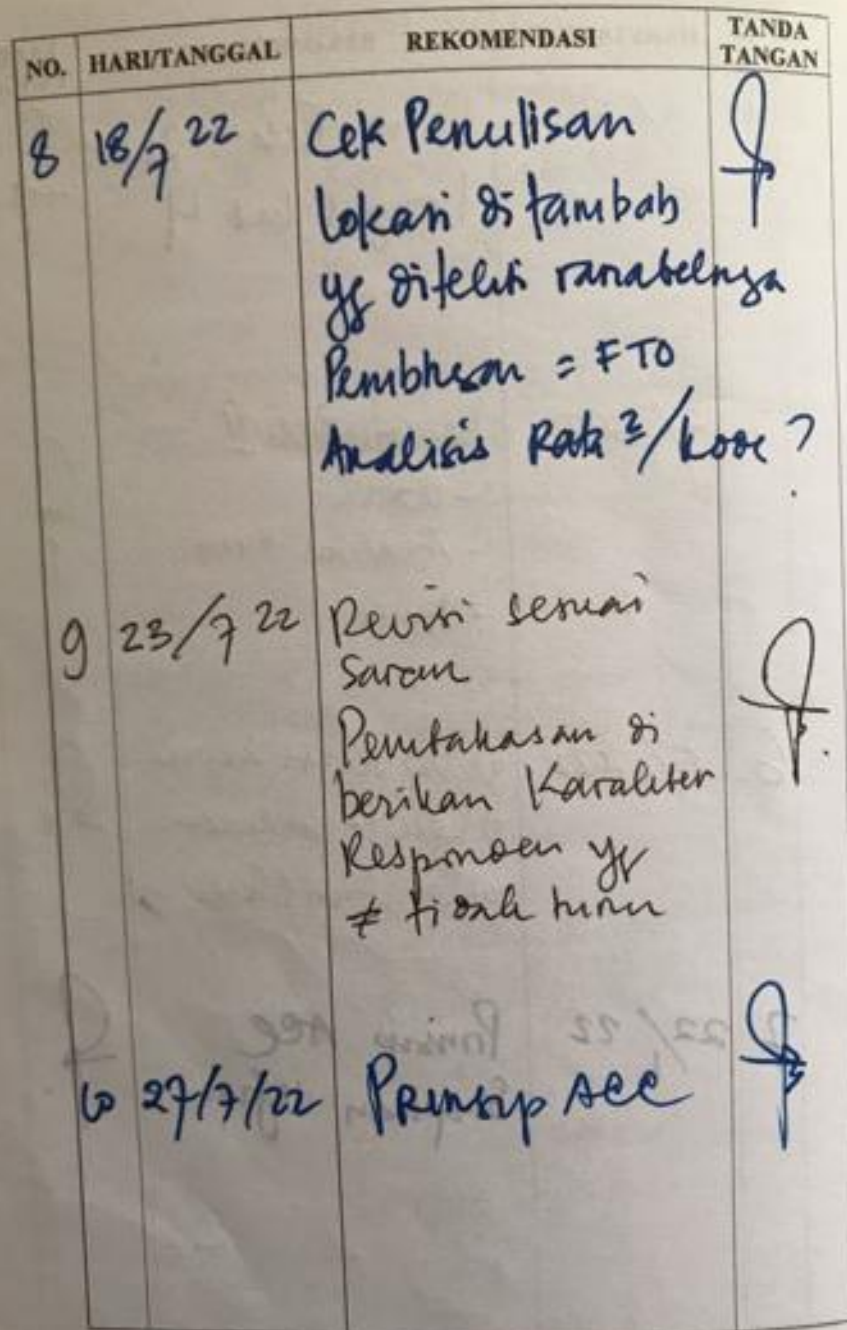 NO. HARI/TANGGAL REKOMENDASI TANDA TANGAN
8 18/7 22 Cek Penulisan
Lokasi ditambah
yg diteliti variabelnya
= FTO
Analisis Rata2/
9 23/7 22 Revisi sesuai
saran
di
berikan Karakter
Responden yg
≠ tidak turun
10 27/7/22 Prinsip ACC